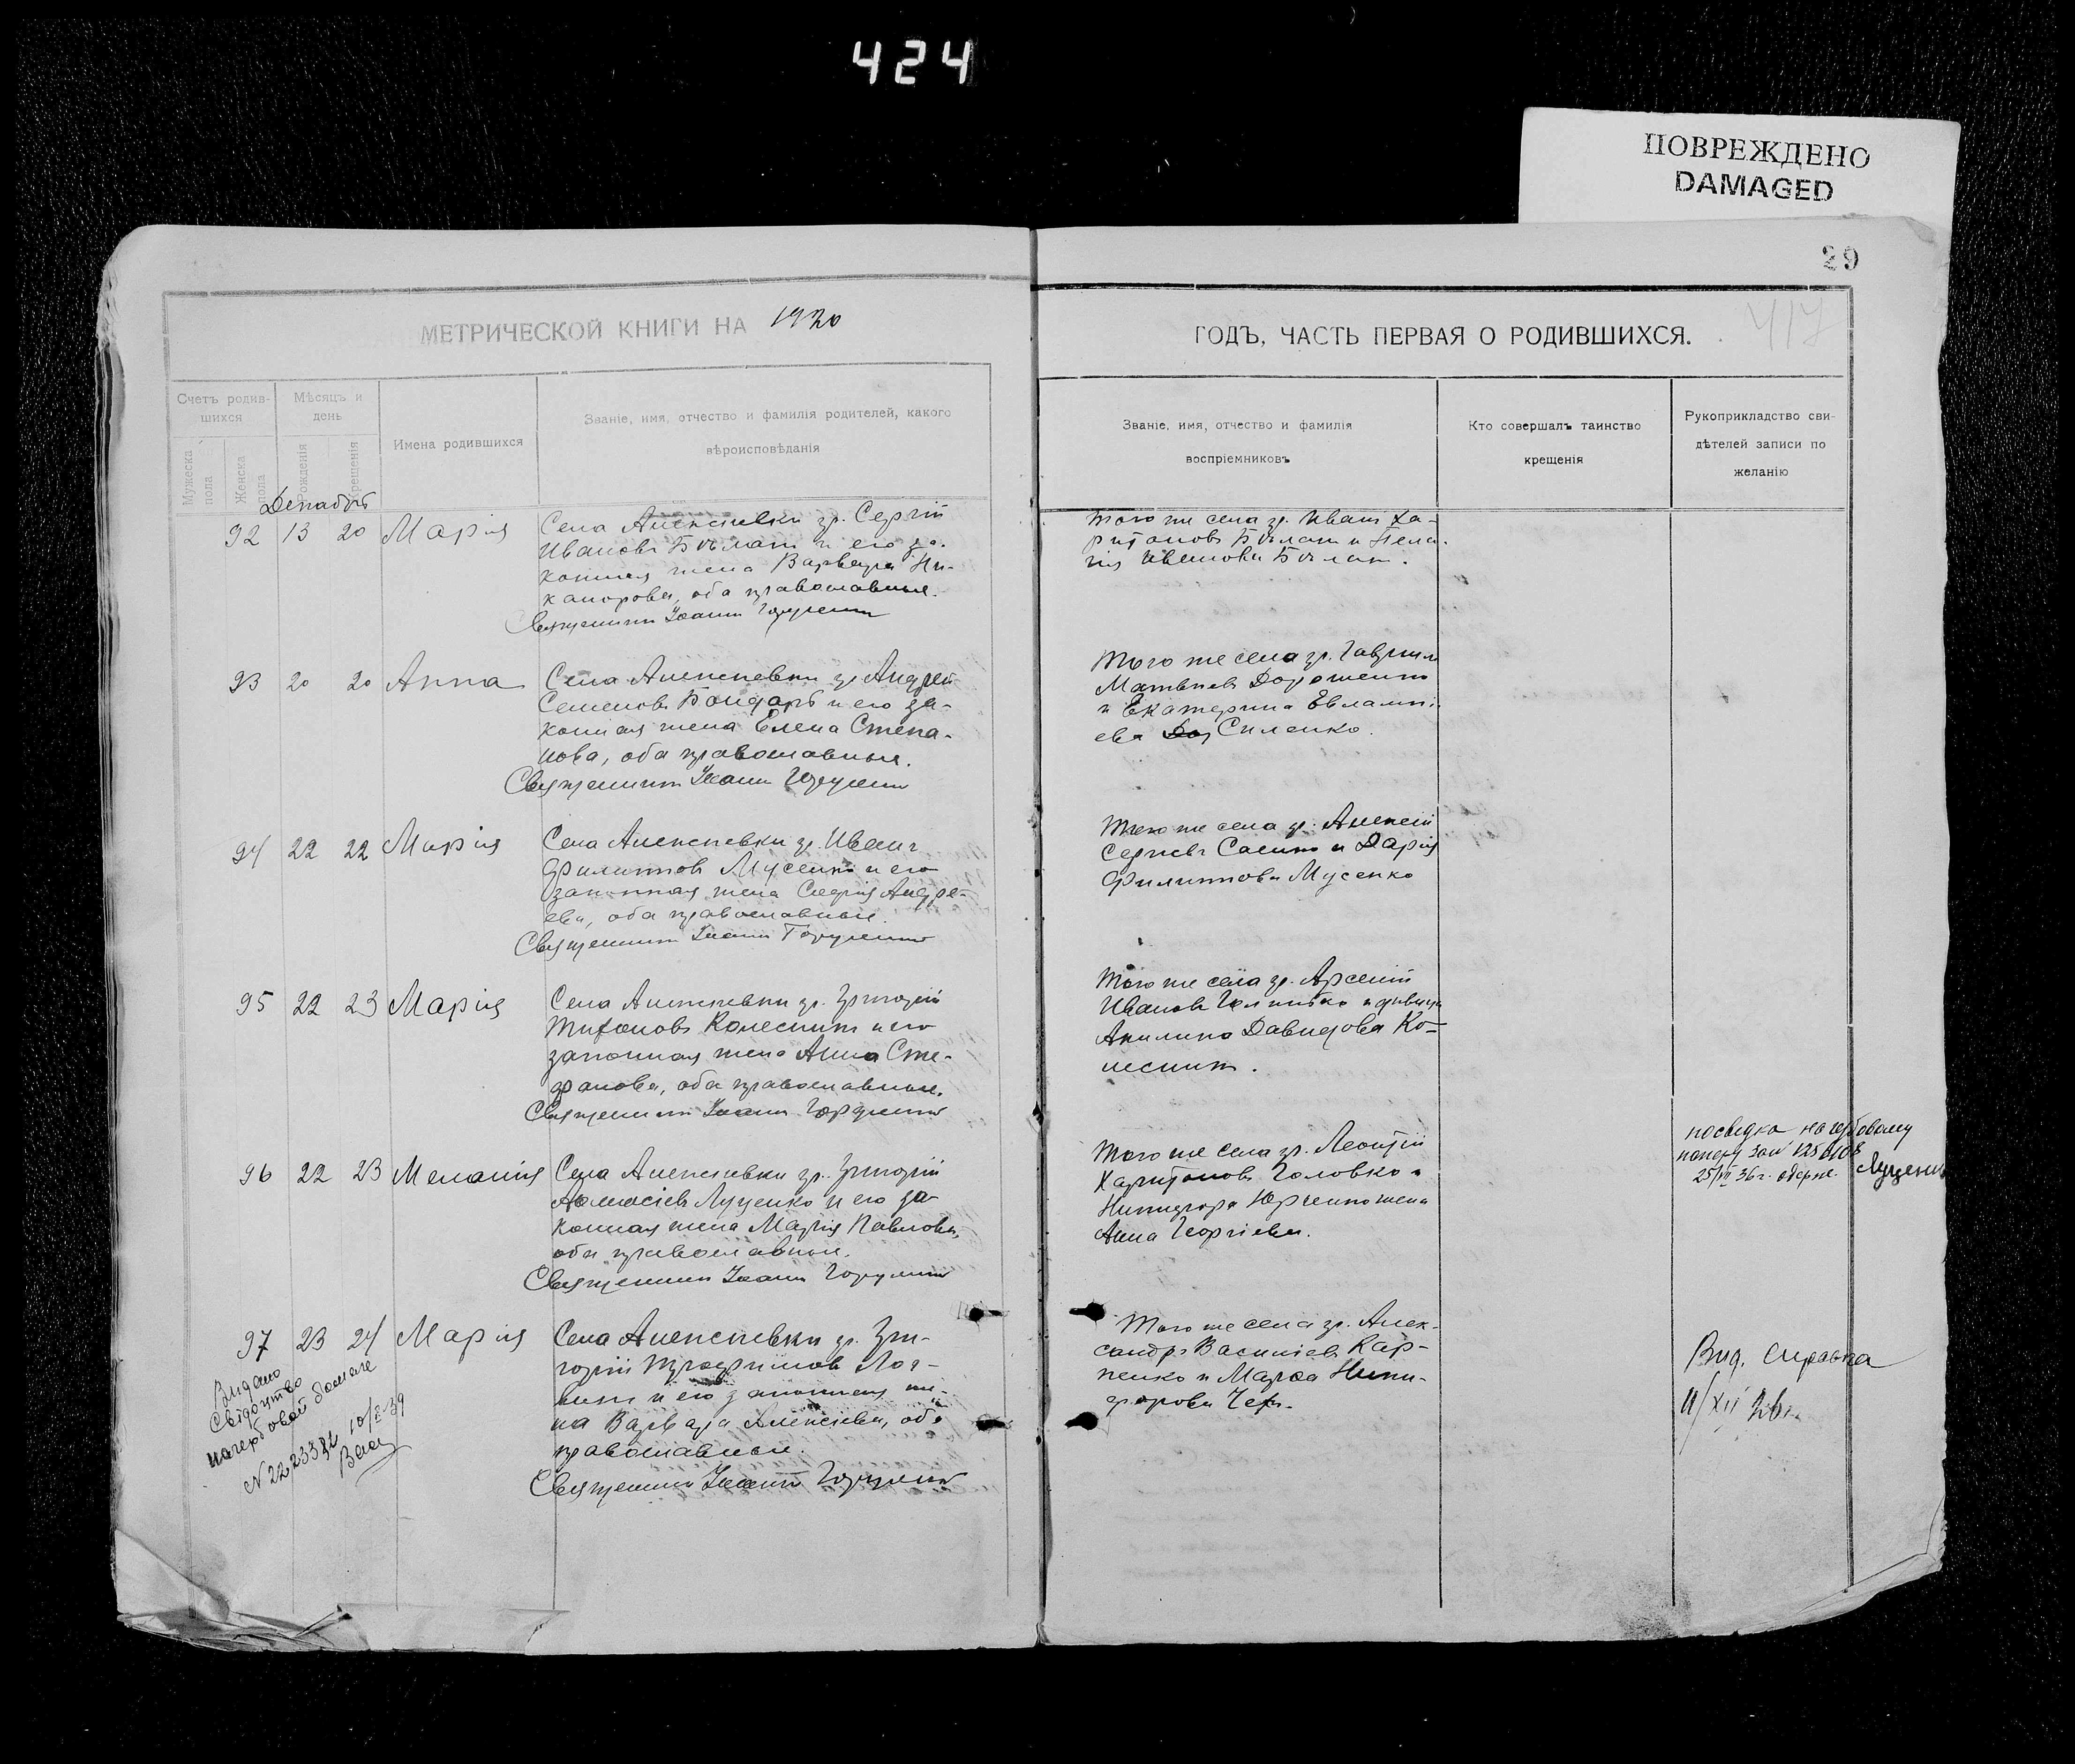 424
ПОВРЕЖДЕНО
DAMAGED
29
417
МЕТРИЧЕСКОЙ КНИГИ НА 1920
ГОДЪ, ЧАСТЬ ПЕРВАЯ О РОДИВШИХСЯ.
Счетъ родив-
шихся
Мужеска пола
Женска пола
Мѣсяцъ и
день
Рожденія
Крещенія
Имена родившихся
Званіе, имя, отчество и фамилія родителей, какого
вѣроисповѣданія
Званіе, имя, отчество и фамилія
воспріемниковъ
Кто совершалъ таинство
крещенія
Рукоприкладство сви-
дѣтелей записи по
желанію
Декабрь
92 13 20 Марія
Села Алексѣевки гр. Сергій
Ивановъ Бѣлан и его за-
конная жена Варвара Ни-
канорова, оба православные.
Священникъ Іоаннъ
Того же села гр. Иван Ха-
ритоновъ Бѣлан и Пела-
гія Иванова Бѣлан.
93 20 20 Анна
Села Алексѣевки гр. Андрей
Семеновъ Бондарь и его за-
конная жена Елена Степа-
нова, оба православные.
Священникъ Іоаннъ
Того же села гр. Гавриил
Матвѣевъ Дорошенко
и Екатерина Евлампі-
ева Силенко.
94 22 22 Марія
Села Алексѣевки гр. Иванъ
Филипповъ Мусенко и его
законная жена Андре-
ева, оба православные.
Священникъ Іоаннъ
Того же села гр. Алексій
Сергѣевъ и Дарія
Филиппова Мусенко
95 22 23 Марія
Села Алексѣевки гр. Григорій
Тихоновъ Колесник и его
законная жена Анна Сте-
фанова, оба православные.
Священникъ Іоаннъ
Того же села гр. Арсеній
Ивановъ и дѣвица
Акилина Давидова Ко-
лесник.
96 22 23 Меланія
Села Алексѣевки гр. Григорій
Афанасіевъ Луценко и его за-
конная жена Марія Павлова,
оба православные.
Священникъ Іоаннъ
Того же села гр. Леонтій
Харитоновъ Головко и
Никифора Юрченко жена
Анна Георгіева.
посвідка на гербовому
папері
Луценко
97 23 24 Марія
Села Алексѣевки гр. Гри-
горій Трофимов Лог-
вин и его законная же-
на Варвара Алексіева, оба
православные.
Священникъ Іоаннъ
Того же села гр. Алек-
сандръ Василіевъ Кар-
пенко и Марфа Ники-
форова
Вид. справка
Видано
Свідоцтво
на гербовой бомаге